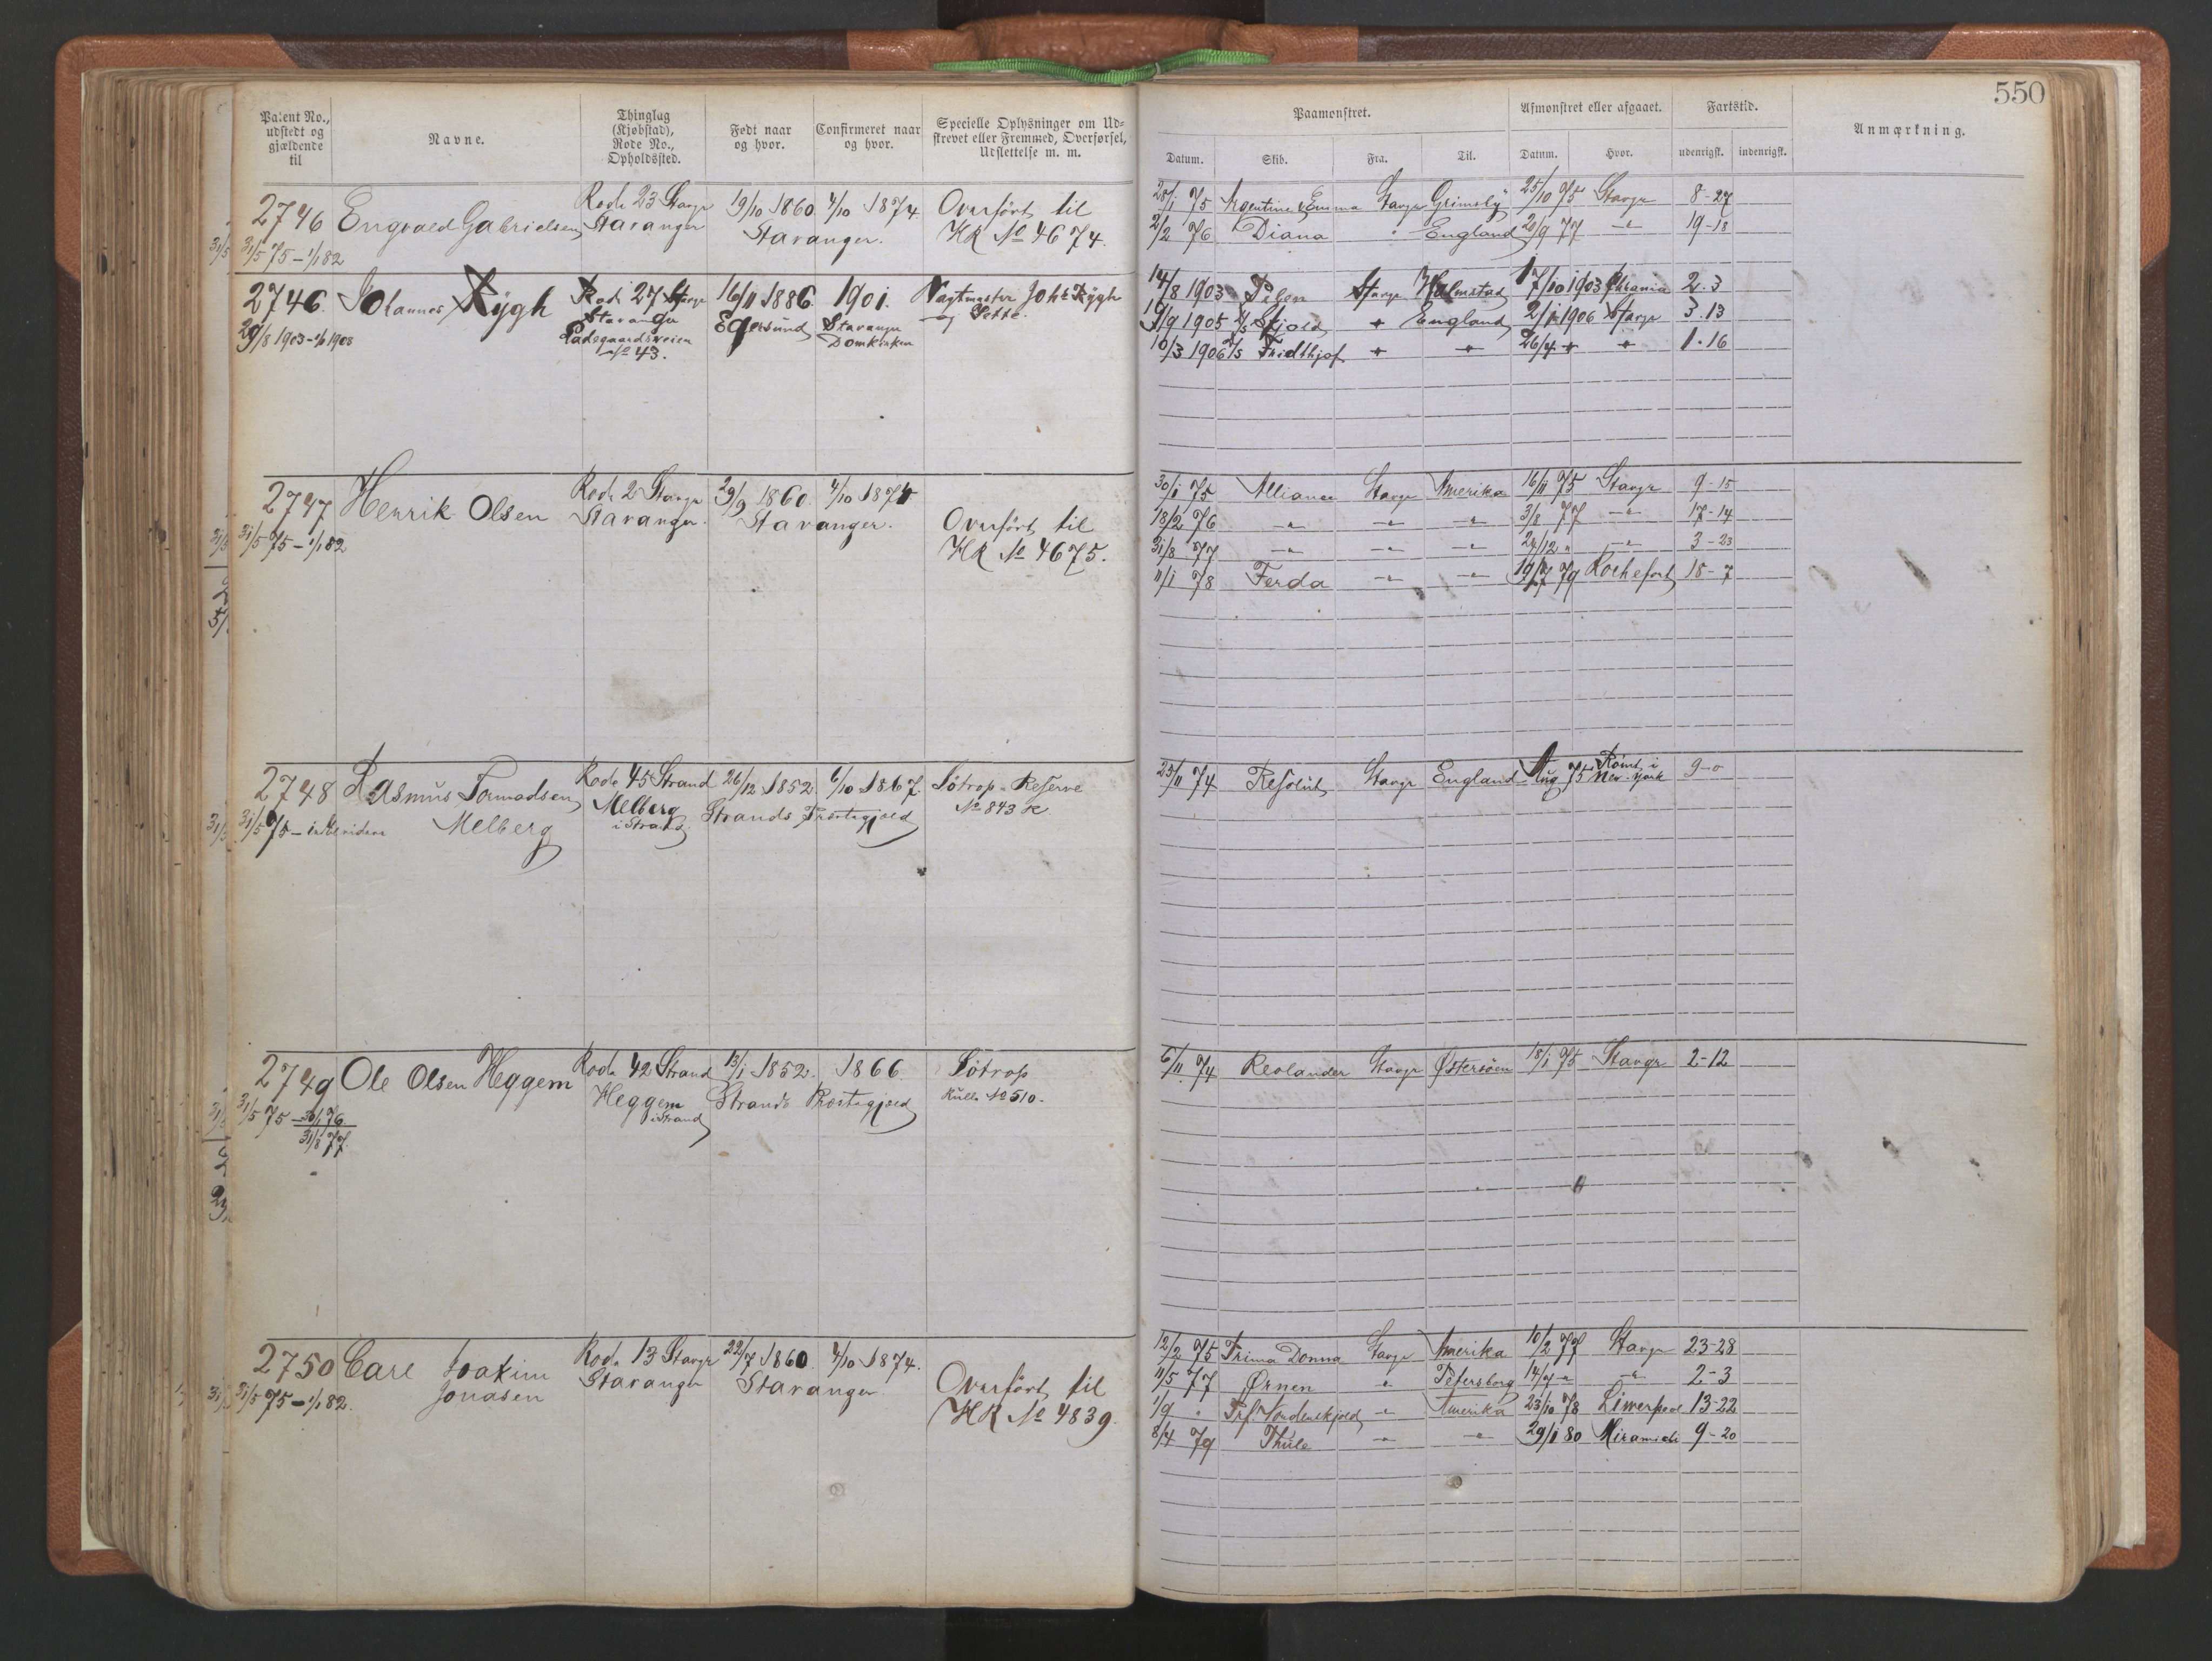 550
Patent No., udstedt og gjældende til
Navne.
Thinglag (Kjøbstad), Rode No., Opholdssted.
Født naar og hvor.
Confirmeret naar og hvor.
Specielle Oplysninger om Udskrevet eller Fremmed, Overførsel, Udslettelse m. m.
Paamønstret.
Datum. Skib. Fra. Til.
Afmønstret eller afgaaet.
Datum. Hvor.
Fartstid.
udenrigsk. indenrigsk.
Anmærkning.
2746 Engvald Gabrielsen Rode 23 Stavgr 19/10 1860 4/10 1874. Overført til
31/5 75 – 1/1 82 Stavanger Stavanger. HR No 4674.
28/1 75 Argentine Emma Stavgr Grimsby 25/10 75 Stavgr 8-27
2/2 76 Diana " England 20/9 77 " 19-18
2746. Johannes Rygh Rode 27 Stavgr 16/11 1886. 1901. Vagtmester Johs Rygh
29/8 1903 – 1/1 1908 Stavanger Egersund Stavanger og Sette.
Ladegaardsveien Domkirken
No 43.
14/8 1903 Stavgr Halmstad 17/10 1903 Chrania 2.3
19/9 1905 D/S Skjold " England 2/1 1906 Stavgr 3.13
10/3 1906 D/S Fridthjof " " 26/4 " " 1.16
2747 Henrik Olsen Rode 2 Stavgr 29/9 1860. 4/10 1874
31/5 75 – 1/1 82 Stavanger. Stavanger. Overført til
HR No 4675.
30/1 75 Alliance Stavgr Amerika 16/11 75 Stavgr 9-15
18/2 76 " " " 3/8 77 " 17-14
31/8 77 " " " 24/12 " " 3-23
11/1 78 Ferda " " 19/7 79 Rochefort 18-7
2748 Rasmus Tormodsen Rode 45 Strand 26/12 1852. 6/10 1867. Søtrop. Reserve
31/5 75 – indtil videre Melberg Melberg Strands Præstegjæld No 843 R
i Strand
23/11 74 Resolut Stavgr England Aug 75 Rømt i New-York 9-0
2749 Ole Olsen Heggem Rode 42 Strand 13/1 1852. 1866. Søtrop
31/5 75 – 30/1 76 Heggem Strands Præstegjæld Rulle No 510.
31/8 77. i Strand
6/11 74 Reolander Stavgr Østersøen 18/1 75 Stavgr 2-12
2750 Carl Joakim Rode 13 Stavgr 22/7 1860. 4/10 1874.
31/5 75 – 1/1 82. Jonasen Stavanger Stavanger Overført til
HR No 4839.
12/2 75 Prima Donna Stavgr Amerika 10/2 77 Stavgr 23-28
11/5 77 Ørnen " Petersborg 14/7 " " 2-3
1/9 " Prf. Nordenskjold " Amerika 23/10 78 Liwerpool 13-22
8/4 79 Thule " " 29/1 80 Miramichi 9-20